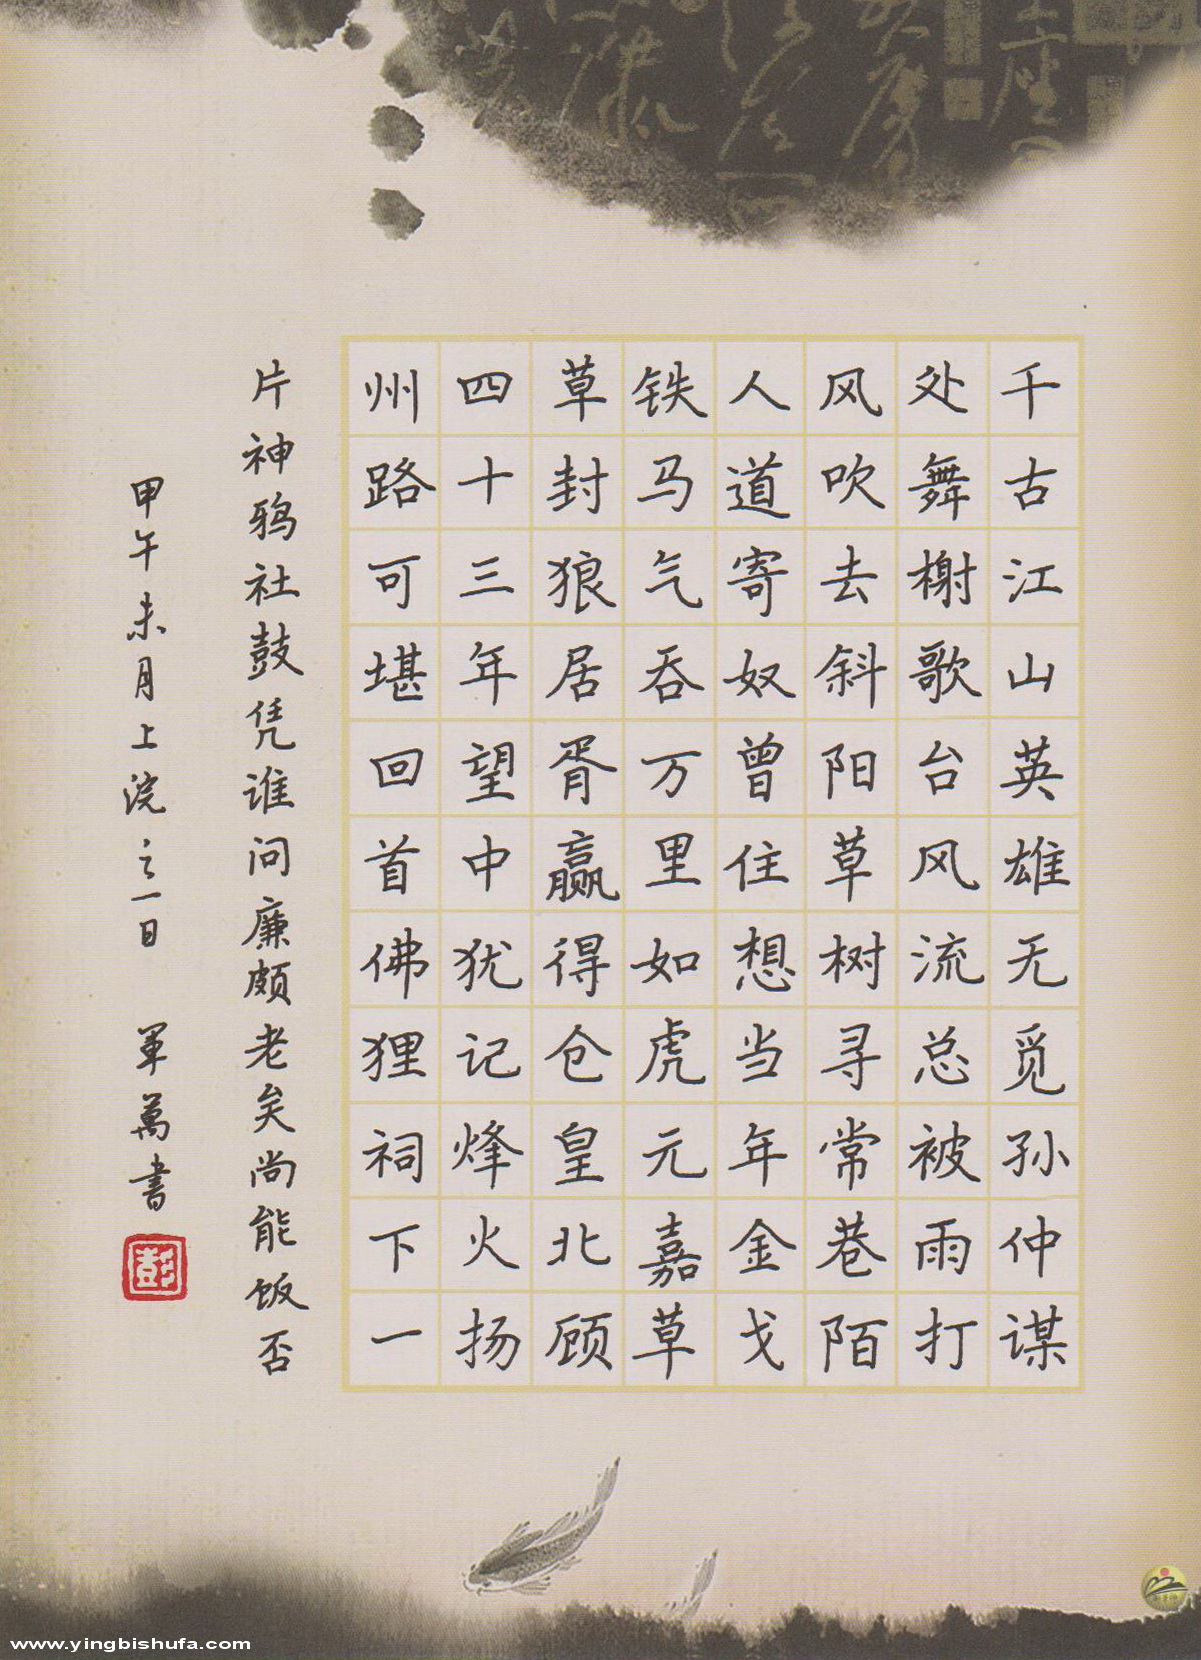 千古江山英雄无觅孙仲谋
处舞榭歌台风流总被雨打
风吹去斜阳草树寻常巷陌
人道寄奴曾住想当年金戈
铁马气吞万里如虎元嘉草
草封狼居胥赢得仓皇北顾
四十三年望中犹记烽火扬
州路可堪回首佛狸祠下一
片神鸦社鼓凭谁问廉颇老矣尚能饭否
甲午未月上浣之一日 军萬書
彭
www.yingbishufa.com